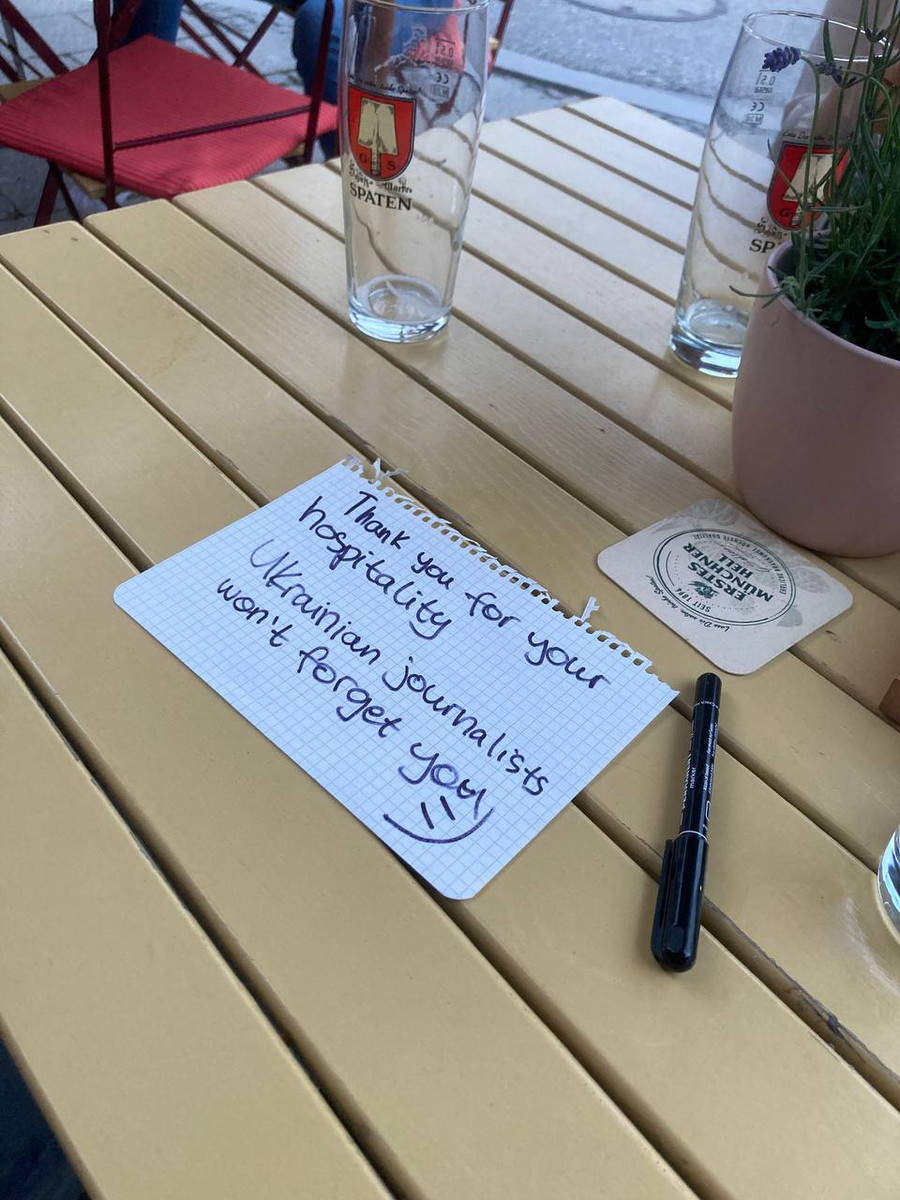 Thank you for your
hospitality
Ukrainian journalists
won't forget you
G S
SPATEN
0,5l
CE
0,5l
CE
G
SP
ERSTES
MÜNCHNER
HELL
SEIT 1894
marker